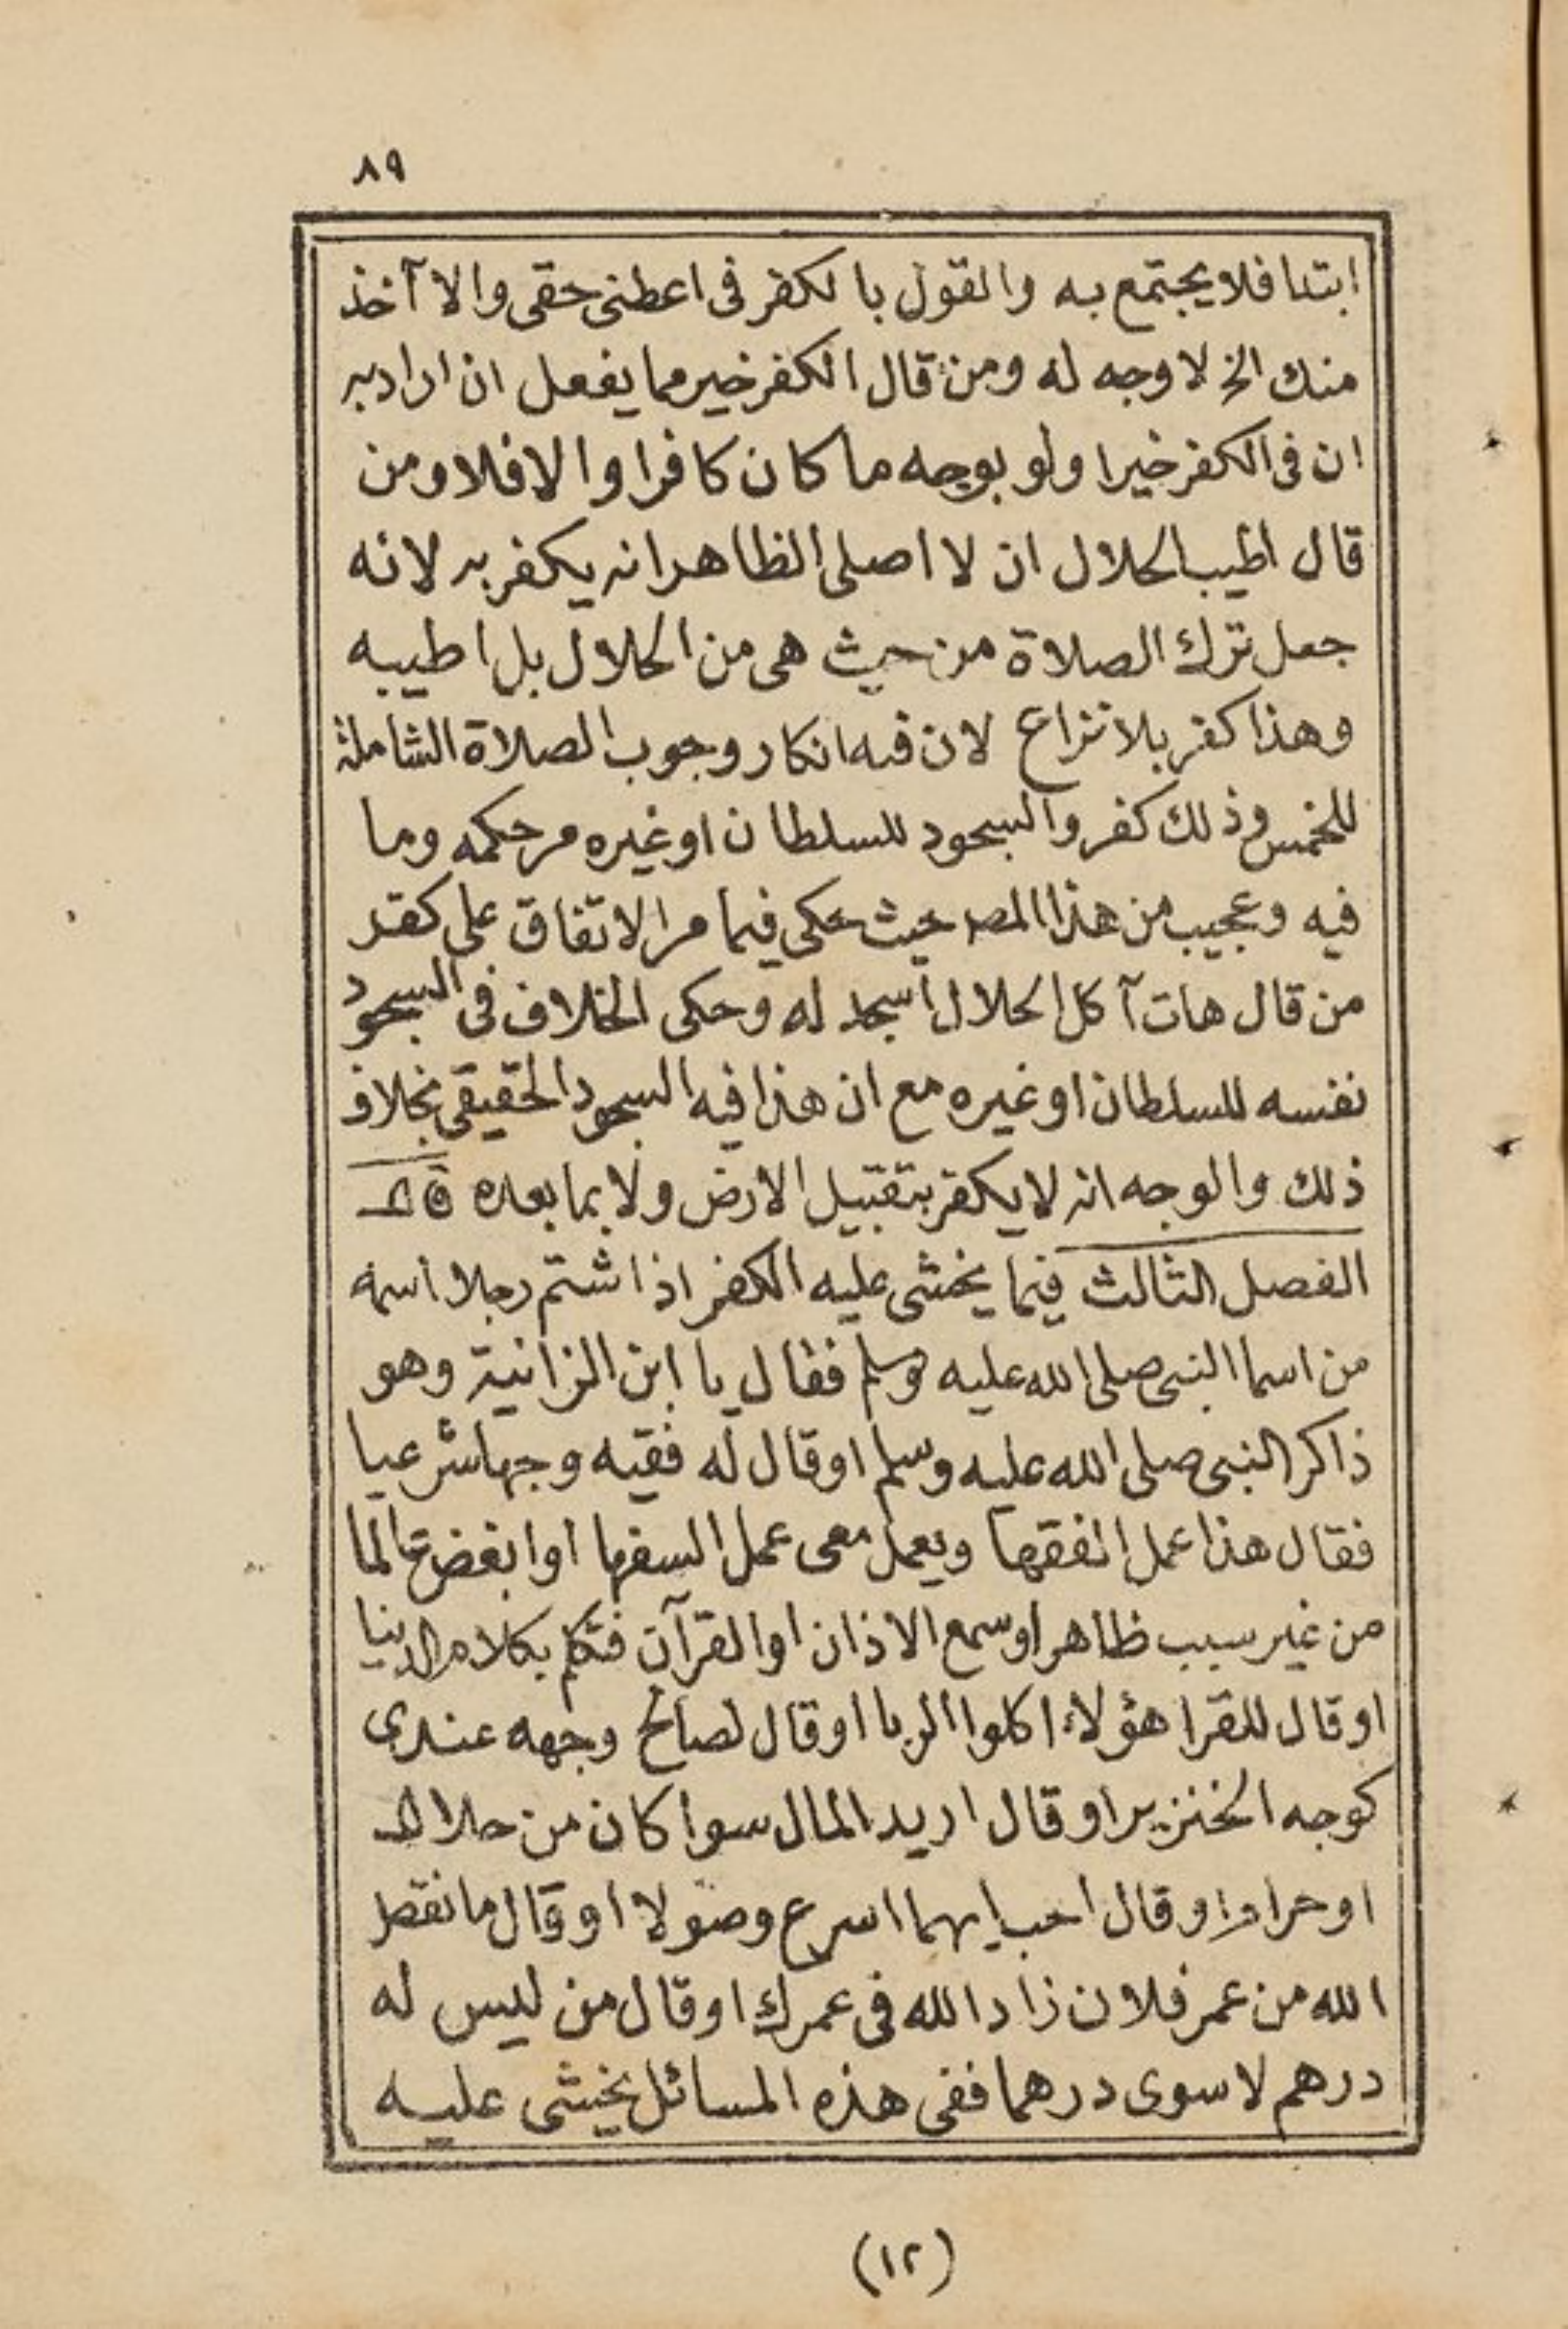 ٨٩
ابتدا فلا يجتمع به والقول بالكفر فى اعطنى حقى والا آخذ
منك الخ لا وجه له ومن قال الكفر خير مما يفعل ان اراد به
ان فى الكفر خيرا ولو بوجه ما كان كافرا والا فلا ومن
قال اطيب الحلال ان لا اصلى الظاهر انه يكفر به لانه
جعل ترك الصلاة من حيث هى من الحلال بل اطيبه
وهذا كفر بلا نزاع لان فيه انكار وجوب الصلاة الشاملة
للخمس وذلك كفر والسجود للسلطان او غيره مر حكمه وما
فيه وعجيب من هذا المص حيث حكى فيما مر الاتفاق على كفر
من قال هات آكل الحلال اسجد له وحكى الخلاف فى السجود
نفسه للسلطان او غيره مع ان هذا فيه السجود الحقيقى بخلاف
ذلك والوجه انه لا يكفر بتقبيل الارض ولا بما بعده
الفصل الثالث فيما يخشى عليه الكفر اذا شتم رجلا اسمه
من اسما النبى صلى الله عليه وسلم فقال يا ابن الزانية وهو
ذاكر النبى صلى الله عليه وسلم او قال له فقيه وجها شرعيا
فقال هذا عمل الفقها ويعمل معى عمل السفها او ابغض عالما
من غير سبب ظاهر او سمع الاذان او القرآن فتكلم بكلام الدنيا
او قال للقرا هؤلاء اكلوا الربا او قال لصالح وجهه عندى
كوجه الخنزير او قال اريد المال سوا كان من حلال
او حرام او قال احب ايهما اسرع وصولا او قال ما نقص
الله من عمر فلان زاد الله فى عمرك او قال من ليس له
درهم لا سوى درهما ففى هذه المسائل يخشى عليه
(١٢)